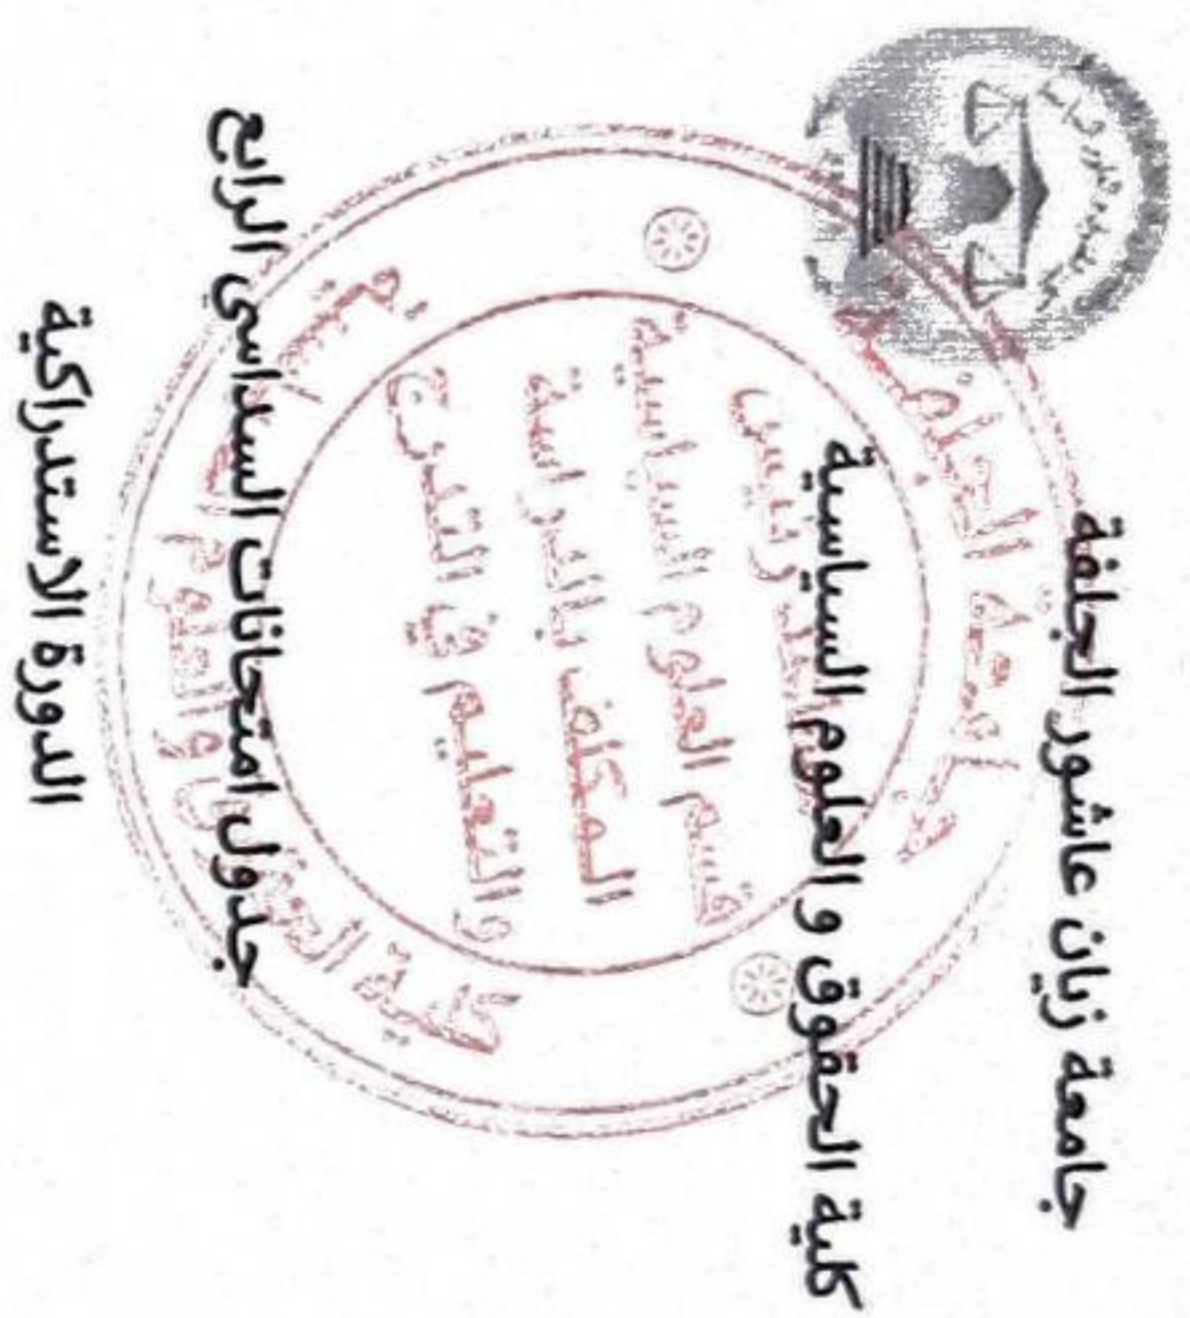 جامعة زيان عاشور الجلفة
كلية الحقوق و العلوم السياسية
جدول امتحانات السداسي الرابع
الدورة الاستدراكية
جامعة الجلفة
رئيس
قسم العلوم السياسية
المكلف بالدراسة
و التعليم في التدرج
كلية الحقوق و العلوم